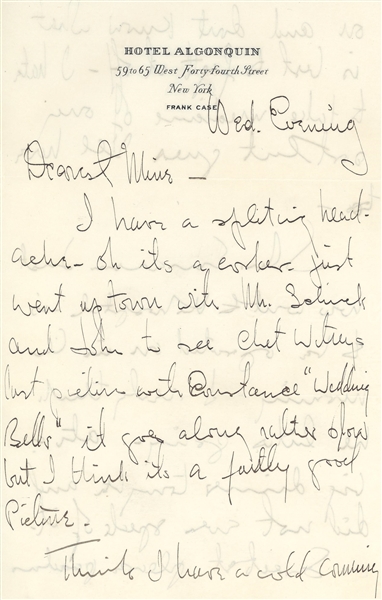 HOTEL ALGONQUIN
59 to 65 West Forty-fourth Street
New York
FRANK CASE
Wed. Evening
Dearest Mine -
I have a spliting head-
ache - oh its a corker - just
went up town with Mr. Schenck
and John to see Chet Witheys
last picture with Constance "Wedding
Bells" it goes along rather slow
but I think its a fairly good
Picture -
Think I have a cold comming